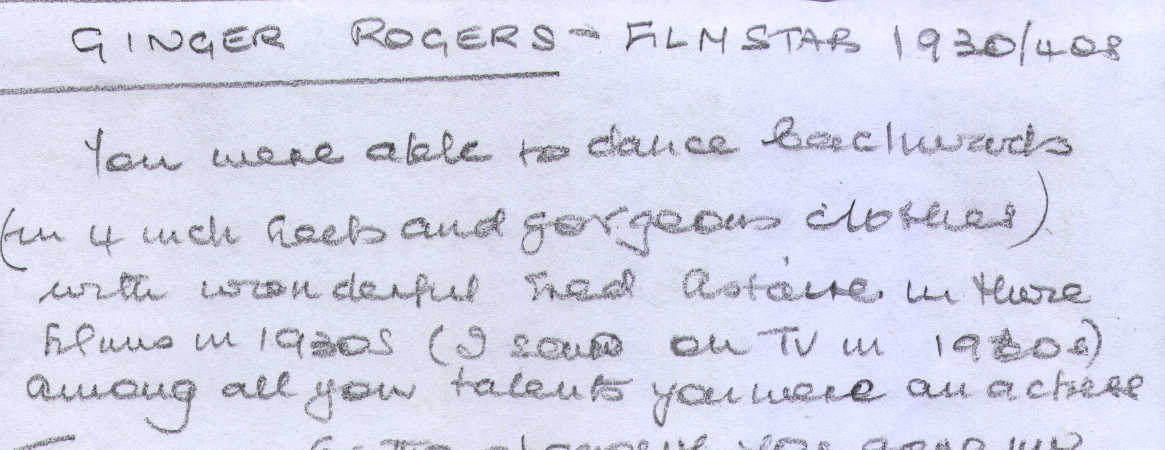 GINGER ROGERS - FILMSTAR 1930/40s
You were able to dance backwards
(in 4 inch heels and gorgeous clothes)
with wonderful Fred Astaire in those
films in 1930s (I saw on TV in 1980s)
among all your talents you were an actress